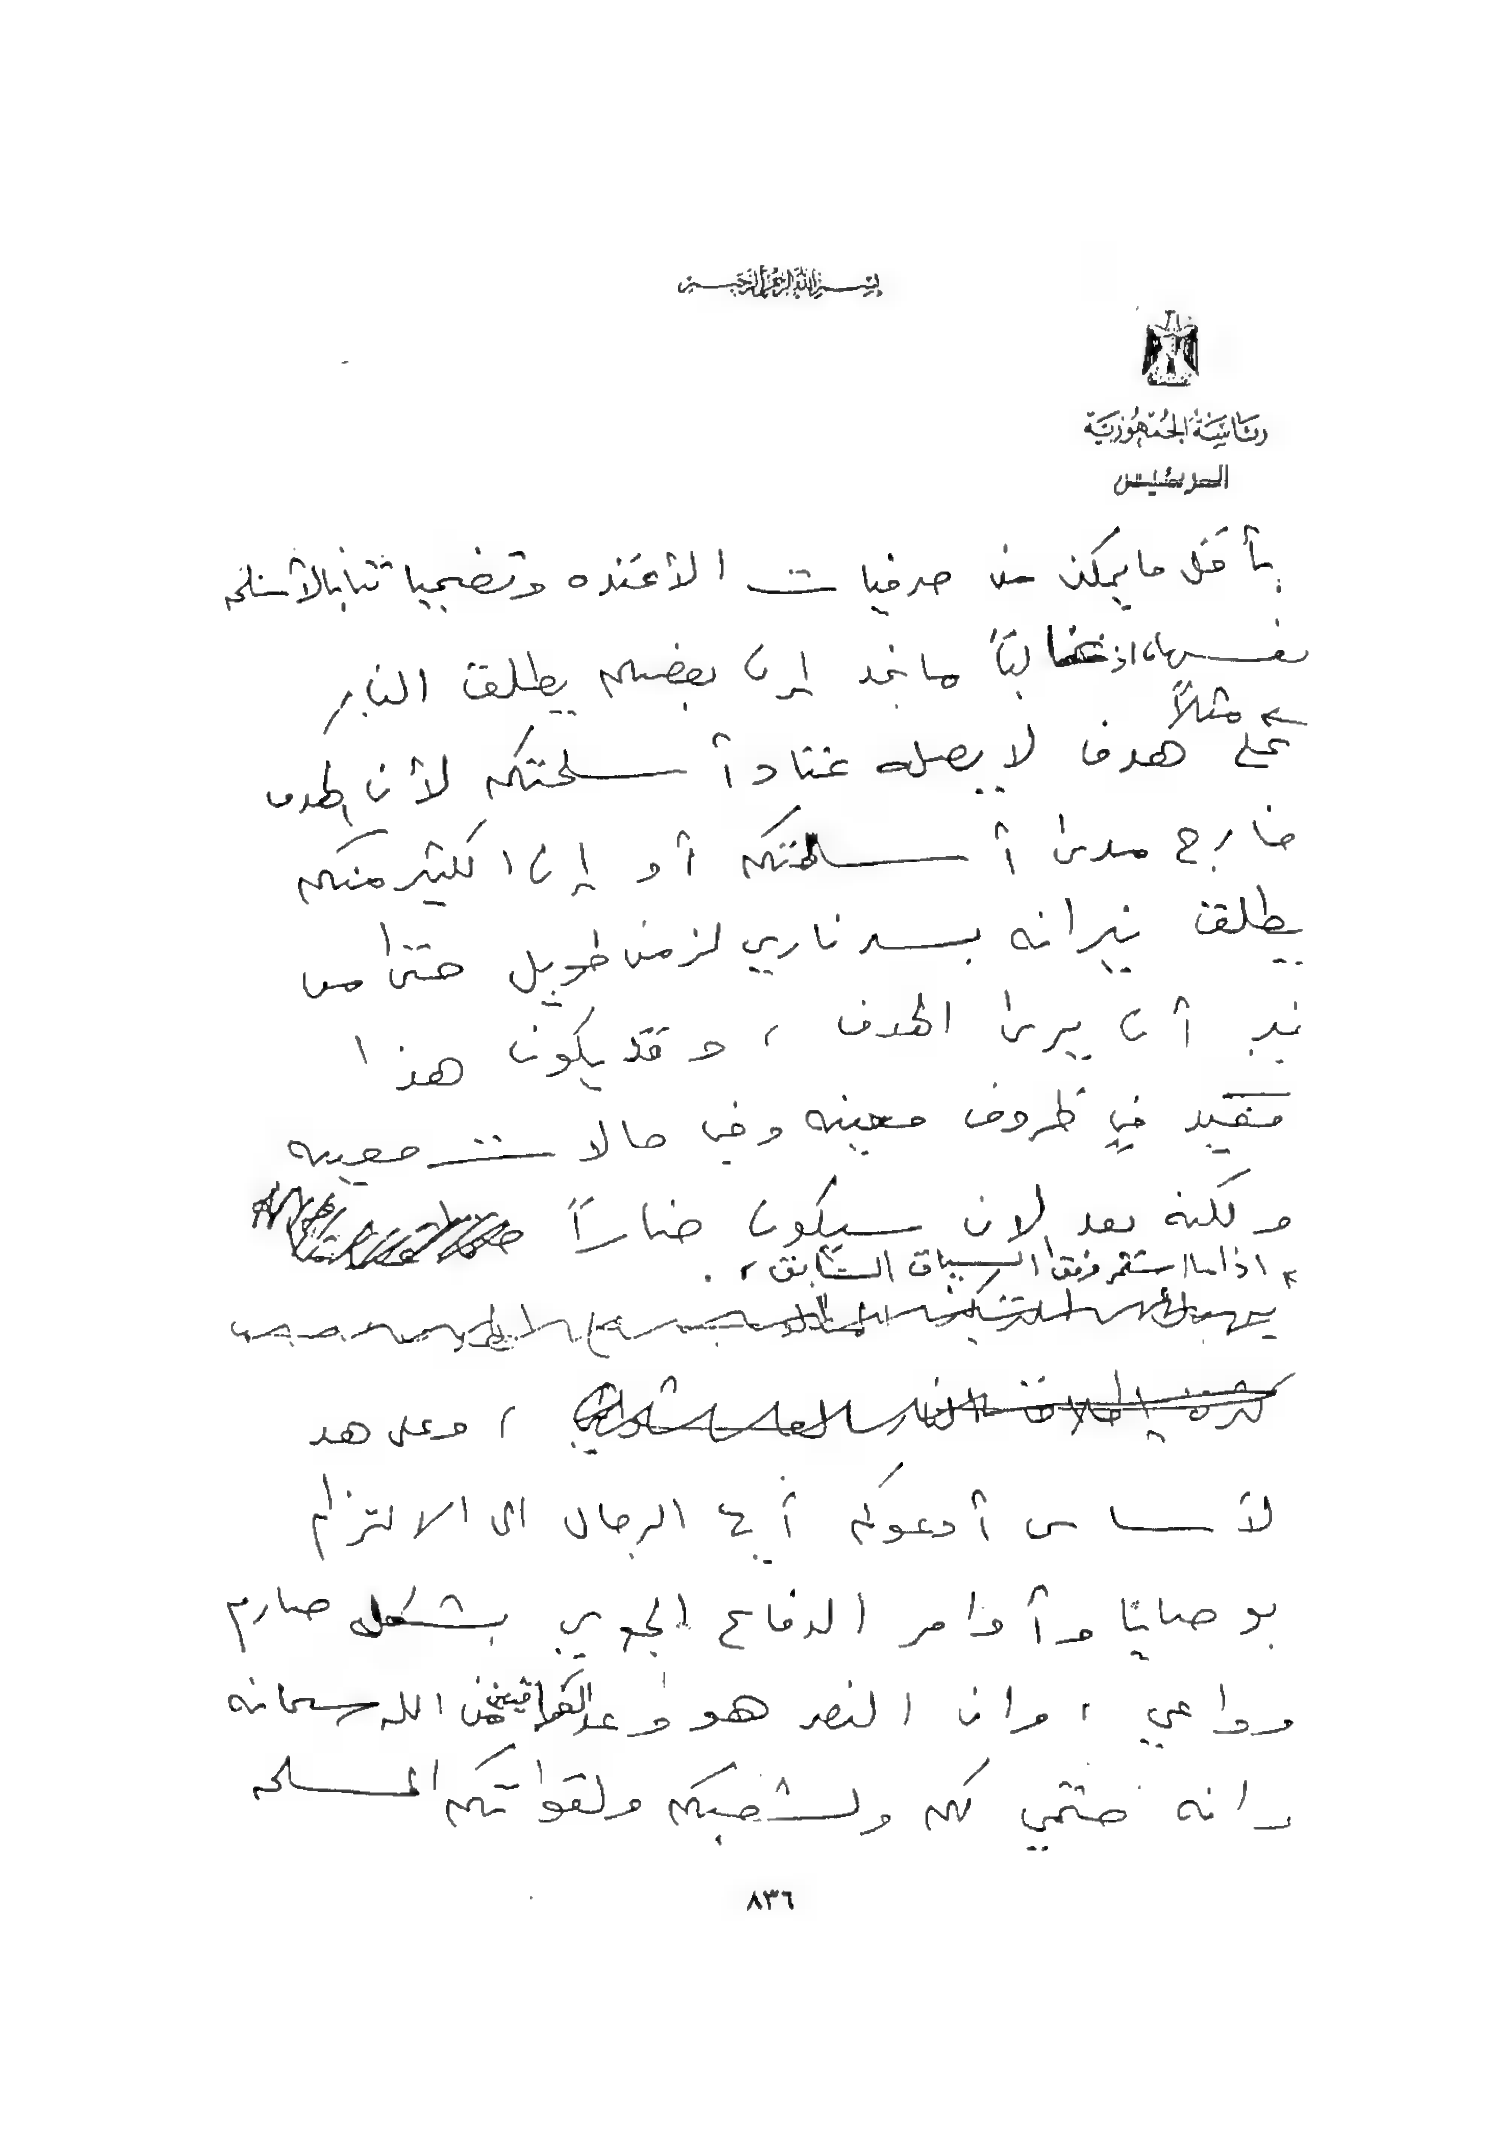 بسم الله الرحمن الرحيم
رئاسة الجمهورية
الرئيس
بأقل ما يمكن من صرفيات الأعتده وتضحياتنا بالأسلحه
نفسها، اذ غالباً ما نجد إن بعضهم يطلق النار
مثلاً
على هدف لا يصله عتاد أسلحتكم لأن الهدف
خارج مدى أسلحتكم أو إن اكثر منكم
يطلق نيرانه بسد ناري لزمن طويل حتى من
غير أن يرى الهدف ، وقد يكون هذا
مفيد في ظروف معينه وفي حالات معينه
ولكنه بعد لان سيكون ضاراً
اذا ما استمر وفق السياق السابق ، .
كثرة إطلاق النار
، وعلى هد
لأساس أدعوكم أيها الرجال الى الالتزام
بوصايا وأوامر الدفاع الجوي بشكل صارم
وواعي ، وان النصر هو وعد من الله سبحانه
وانه حتمي لكم ولشعبكم ولقواتكم المسلحه
٨٣٦